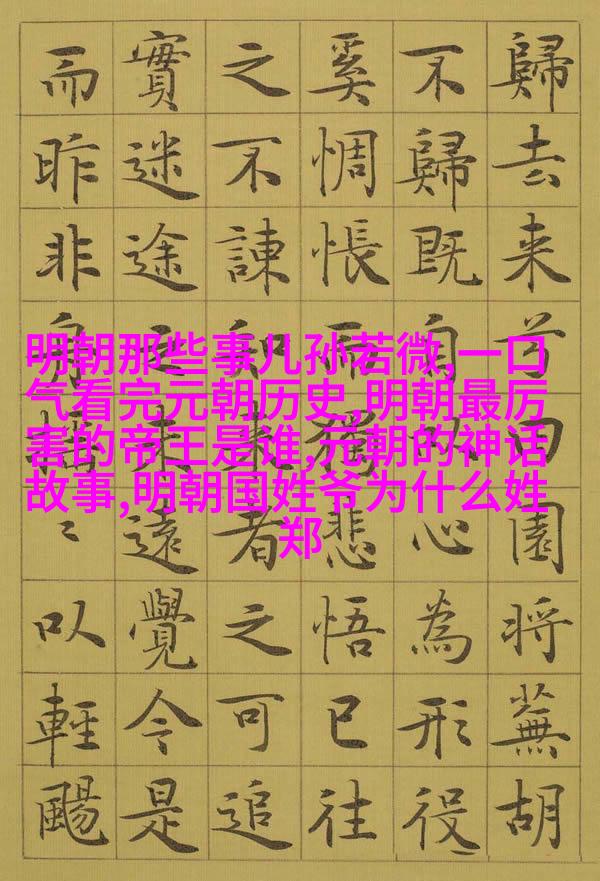 歸去来兮田園将蕪胡
不歸既自以心為形役
奚惆悵而獨悲悟已往
之不諫知来者之可追
實迷途未遠覺今是
而昨非舟摇〻以輕颺
明朝那些事儿孙若微,一口
气看完元朝历史,明朝最厉
害的帝王是谁,元朝的神话
故事,明朝国姓爷为什么姓
郑